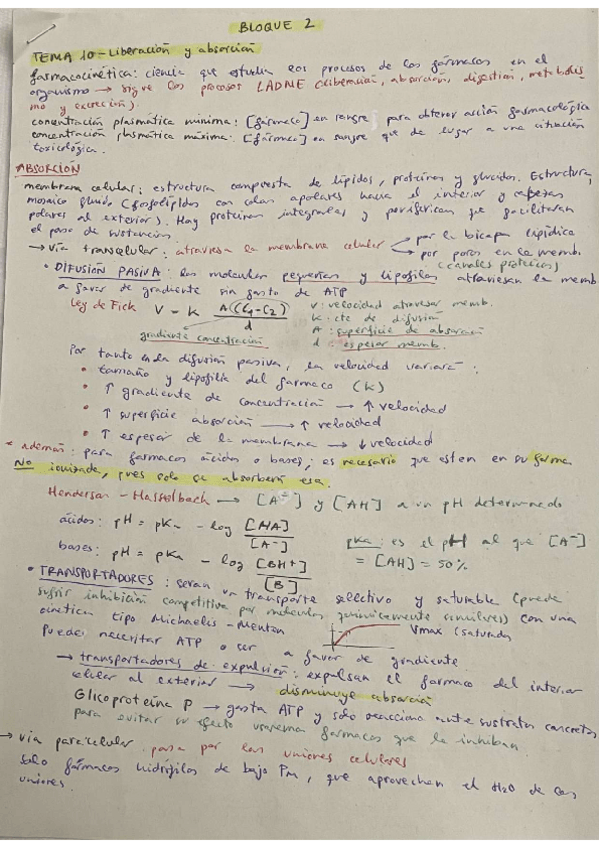 BLOQUE 2
TEMA 10 - Liberación y absorción
farmacocinética: ciencia que estudia los procesos de los fármacos en el
organismo → sigue los procesos LADME (liberación, absorción, digestión, metabolis
mo y excreción).
concentración plasmática mínima: [fármaco] en sangre para obtener acción farmacológica
concentración plasmática máxima: [fármaco] en sangre que de lugar a una situación
toxicológica.
ABSORCIÓN
membrana celular: estructura compuesta de lípidos, proteínas y glúcidos. Estructura
mosaico fluido (fosfolípidos con colas apolares hacia el interior y cabezas
polares al exterior). Hay proteínas integrales y periféricas que facilitaran
el paso de sustancias.
→ vía transcelular: atraviesa la membrana celular
por la bicapa lipídica
por poros en la memb.
(canales proteicos)
• DIFUSIÓN PASIVA: las moléculas pequeñas y lipófilas atraviesan la memb
a favor de gradiente sin gasto de ATP
Ley de Fick V = K A(C1-C2) / d
gradiente concentración
V: velocidad atravesar memb.
K: cte de difusión
A: superficie de absorción
d: espesor memb.
Por tanto en la difusión pasiva, la velocidad variará:
• tamaño y lipofilia del fármaco (K)
• ↑ gradiente de concentración → ↑ velocidad
• ↑ superficie absorción → ↑ velocidad
• ↑ espesor de la membrana → ↓ velocidad
* además: para fármacos ácidos o bases, es necesario que estén en su forma
No ionizada, pues solo se absorberá esa.
Henderson - Hasselbach → [A⁻] y [AH] a un pH determinado
ácidos: pH = pKa - log [HA] / [A⁻]
bases: pH = pKa - log [BH⁺] / [B]
pKa: es el pH al que [A⁻]
= [AH] = 50%
• TRANSPORTADORES: serán un transporte selectivo y saturable (puede
sufrir inhibición competitiva por moléculas químicamente similares) con una
cinética tipo Michaelis-Menten
Vmax (saturado)
Puede necesitar ATP o ser a favor de gradiente
→ transportadores de expulsión: expulsan el fármaco del interior
celular al exterior → disminuye absorción
Glicoproteína P → gasta ATP y solo reacciona ante sustratos concretos,
para evitar su efecto usaremos fármacos que la inhiban.
→ vía paracelular: pasa por las uniones celulares
solo fármacos hidrófilos de bajo Pm, que aprovechan el H2O de las
uniones.